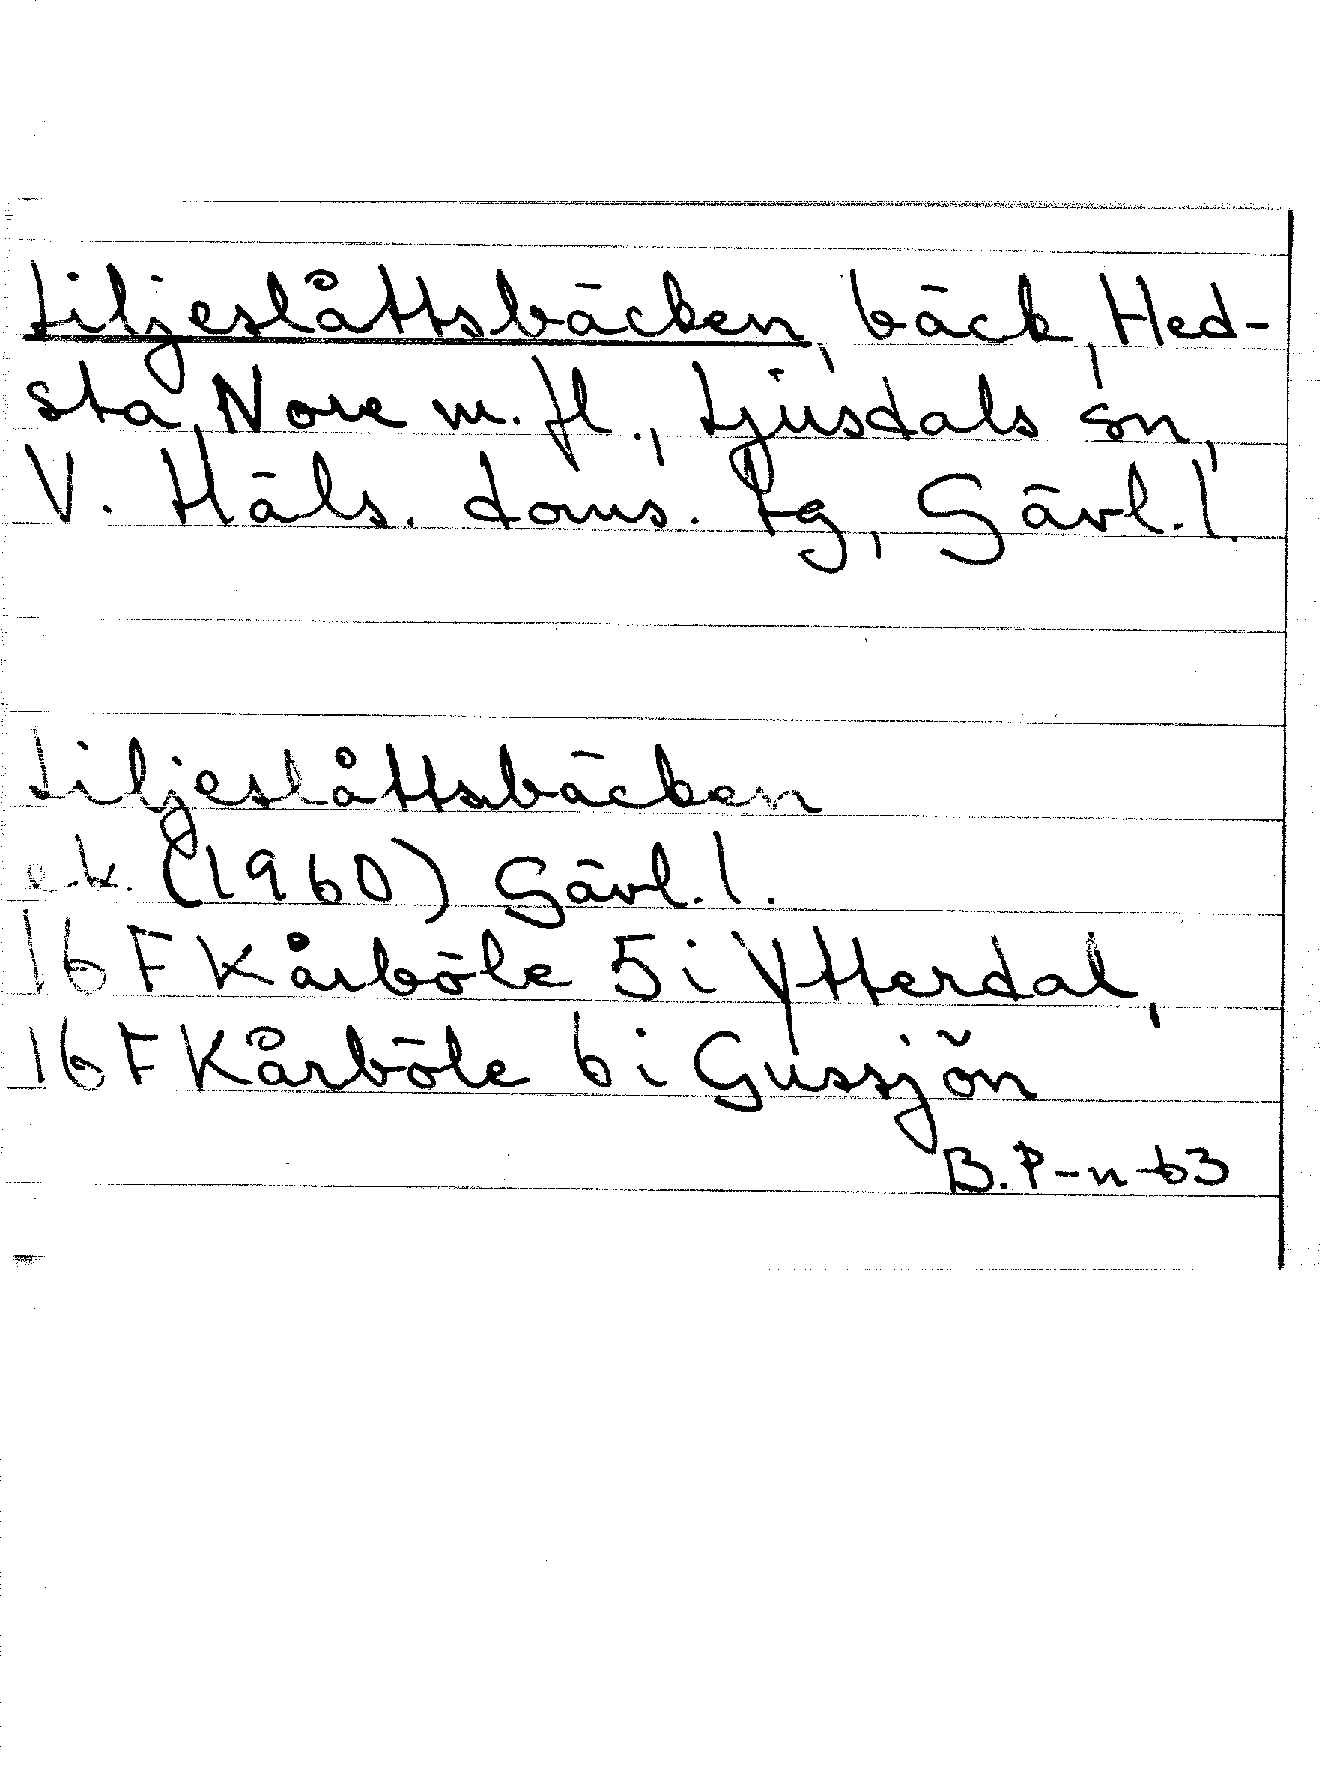 Liljeslåttsbäcken, bäck, Hed-
sta, Nore m. fl., Ljusdals sn,
V. Häls. doms. tg, Gävl. l.
Liljeslåttsbäcken
e.k. (1960) Gävl. l.
16 F Kårböle 5 i Ytterdal,
16 F Kårböle 6 i Gussjön
B. P-n -63